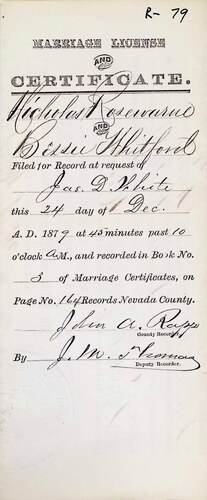 R- 79
MARRIAGE LICENSE
AND
CERTIFICATE.
Nicholas Rosewarne
AND
Bessie Whitford
Filed for Record at request of
Jas. D. White
this 24 day of Dec.
A. D. 1879 at 45 minutes past 10
o'clock A M., and recorded in Book No.
3 of Marriage Certificates, on
Page No. 164 Records Nevada County.
John A. Rapp
County Recorder.
By J. M. Thomas
Deputy Recorder.